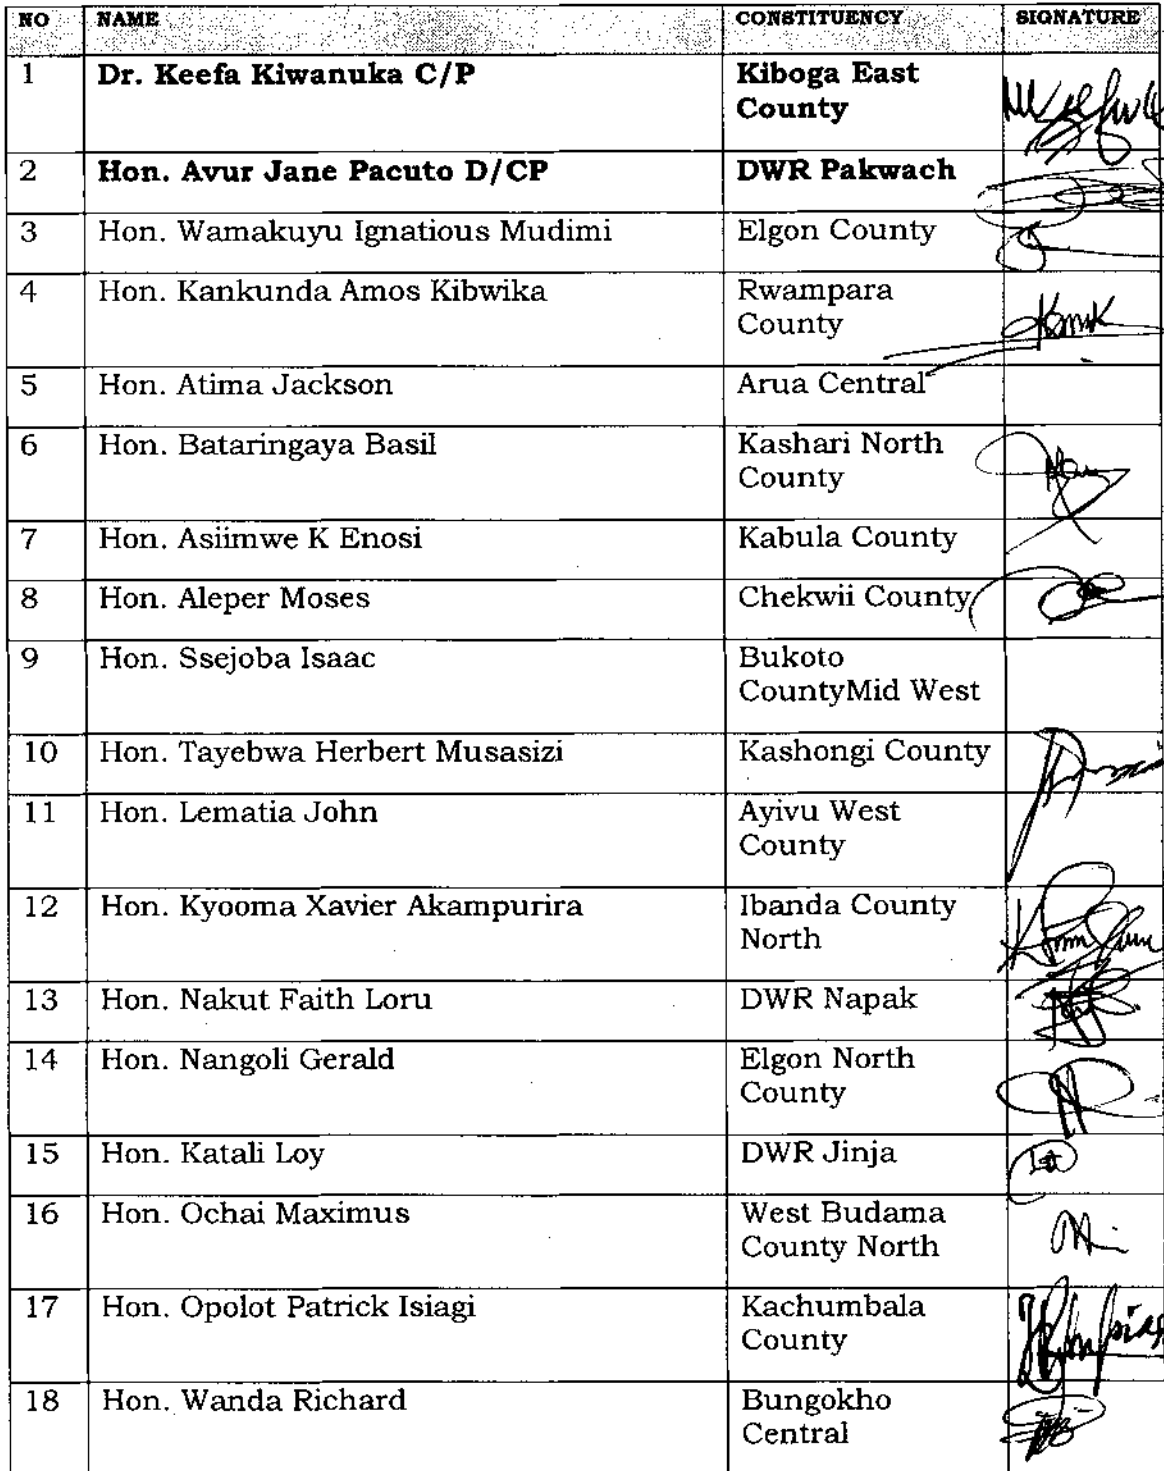 NO NAME CONSTITUENCY SIGNATURE
1 Dr. Keefa Kiwanuka C/P Kiboga East
County
2 Hon. Avur Jane Pacuto D/CP DWR Pakwach
3 Hon. Wamakuyu Ignatious Mudimi Elgon County
4 Hon. Kankunda Amos Kibwika Rwampara
County
5 Hon. Atima Jackson Arua Central
6 Hon. Bataringaya Basil Kashari North
County
7 Hon. Asiimwe K Enosi Kabula County
8 Hon. Aleper Moses Chekwii County
9 Hon. Ssejoba Isaac Bukoto
CountyMid West
10 Hon. Tayebwa Herbert Musasizi Kashongi County
11 Hon. Lematia John Ayivu West
County
12 Hon. Kyooma Xavier Akampurira Ibanda County
North
13 Hon. Nakut Faith Loru DWR Napak
14 Hon. Nangoli Gerald Elgon North
County
15 Hon. Katali Loy DWR Jinja
16 Hon. Ochai Maximus West Budama
County North
17 Hon. Opolot Patrick Isiagi Kachumbala
County
18 Hon. Wanda Richard Bungokho
Central